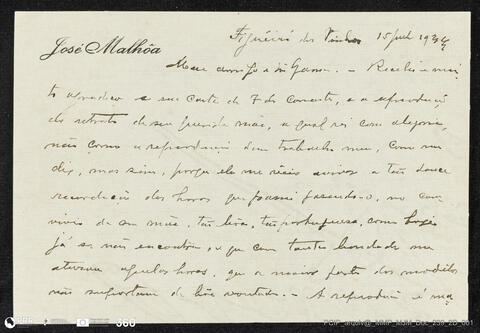 José Malhôa
Figueiró dos Vinhos 15 Jul 193
Meu amigo e Sr Gama. — Recebi e mui
to agradeço a sua carta de 7 do corrente, e a reprodução
do retrato de sua querida mãe, a qual vi com alegria,
não como a reprodução dum trabalho meu, com
digo, mas sim, porque ela me veio avivar a tão doce
recordação das horas que passei fazendo-o, no con
vivio de sua mãe, tão bôa, tão portuguesa, como hoje
já se não encontra, e que com tanta bondade me
aturou aquelas horas, que a maior parte dos modêlos
não suportam de bôa vontade. — A reprodução é ma
360
PCIP_arquivo@_MMP_MJM_Doc_239_2D_001